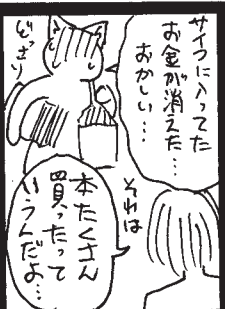 サイフに入ってた
お金が消えた…
おかしい…
どっさり
それは
本たくさん
買ったって
いうんだよ…